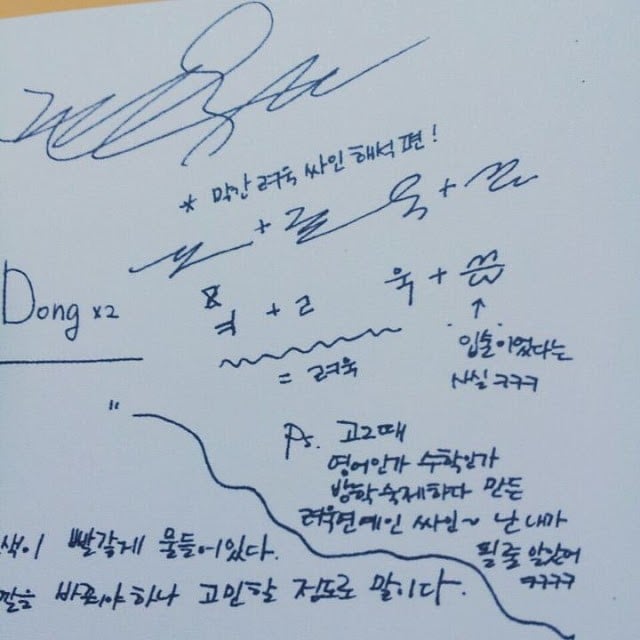 * 막간 려욱 싸인 해석 편!
+ +
Dong x2
여 + ㄹ 욱 +
↑
= 려욱
입술이었다는
사실 ㅋㅋㅋ
"
Ps. 고2때
영어인가 수학인가
방학숙제하다 만든
려욱연예인 싸인~ 난 내가
필로 알았어
ㅋㅋㅋㅋ
색이 빨갛게 물들어있다.
깔을 바꿔야하나 고민할 정도로 말이다.